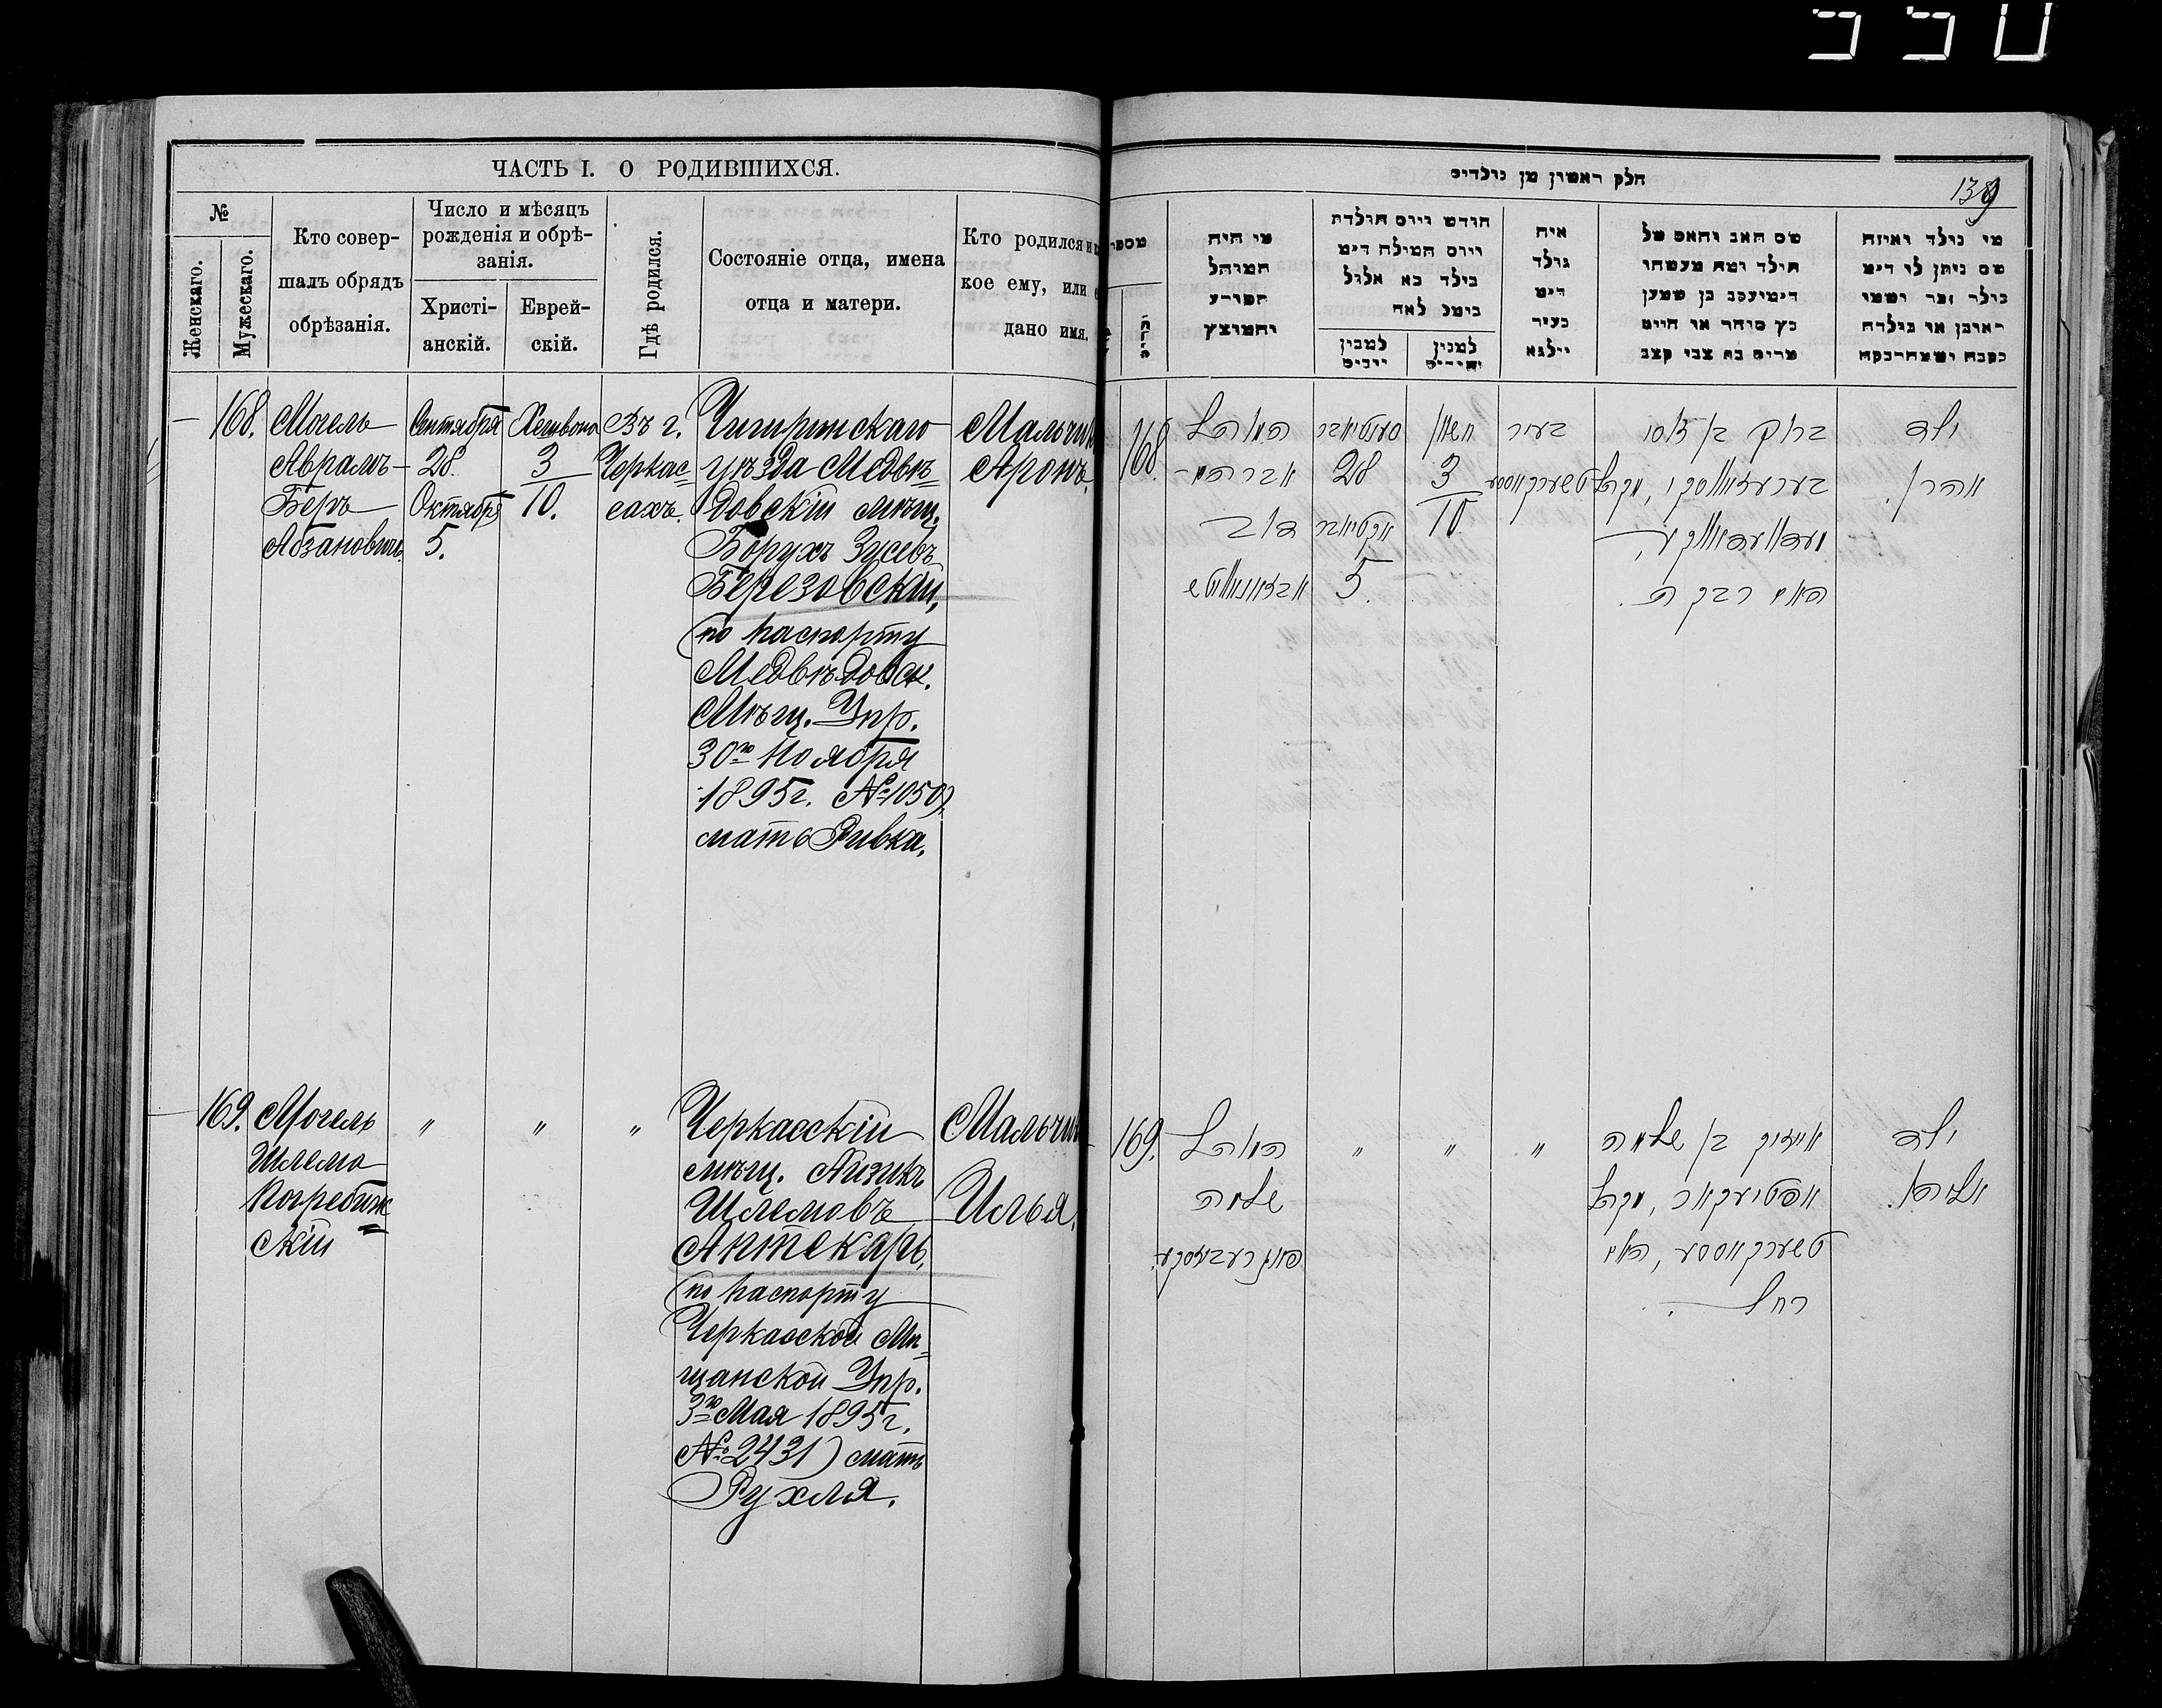 550
ЧАСТЬ I. О РОДИВШИХСЯ.
№
Женскаго.
Мужескаго.
Кто совер-
шалъ обрядъ
обрѣзанія.
Число и мѣсяцъ
рожденія и обрѣ-
занія.
Христі-
анскій.
Еврей-
скій.
Гдѣ родился.
Состояніе отца, имена
отца и матери.
Кто родился и ка
кое ему, или е
дано имя.
168.
Могель
Абрамъ-
Беръ
Абзановичъ
Сентября
28.
Октября
5.
Хешвона
3
10.
Въ г.
Черкас=
сахъ.
Чигиринскаго
уѣзда Медвѣ=
довскій мѣщ.
Борухъ Зусевъ
Березовскій,
(по паспорту
Медвѣдовск.
Мѣщ. Упр.
30го Ноября
1895г. №1050)
мать Ривка.
Мальчик
Аронъ.
169.
Могель
Шлема
Погребиж
=
скій
"
"
"
Черкасскій
мѣщ. Айзикъ
Шлемовъ
Аптекарь,
(по паспорту
Черкасской Мѣ=
щанской Упр.
3го Мая 1895г.
№2431) мать
Рухля.
Мальчик
Илья.
חלק ראשון מן נולדים
139
מספר
מי היה
המוהל
הפורע
והמוצץ
חודש ויום הולדת
ויום המילה
איה
נולד
בעיר
ווילנא
שם האב והאם של
הילד ומה מעשהו
כץ סוחר או חייט
מרים בת צבי קצב
מי נולד ואיזה
שם ניתן לו
168.
המוהל
אברהם-
דוב
אבזאנאוויטש
סענטיאבר
28
אקטיאבר
5.
חשון
3
10
בעיר
טשערקאססע
ברוך בן זוסי
בערעזאווסקי, מקהל
מעדוועדאווקע,
האם רבקה.
ילד
אהרן.
169.
המוהל
שלמה
פאגרעביסקע.
"
"
"
אייזיק בן שלמה
אפטייקאר, מקהל
טשערקאססע, האם
רחל.
ילד
אליהו.